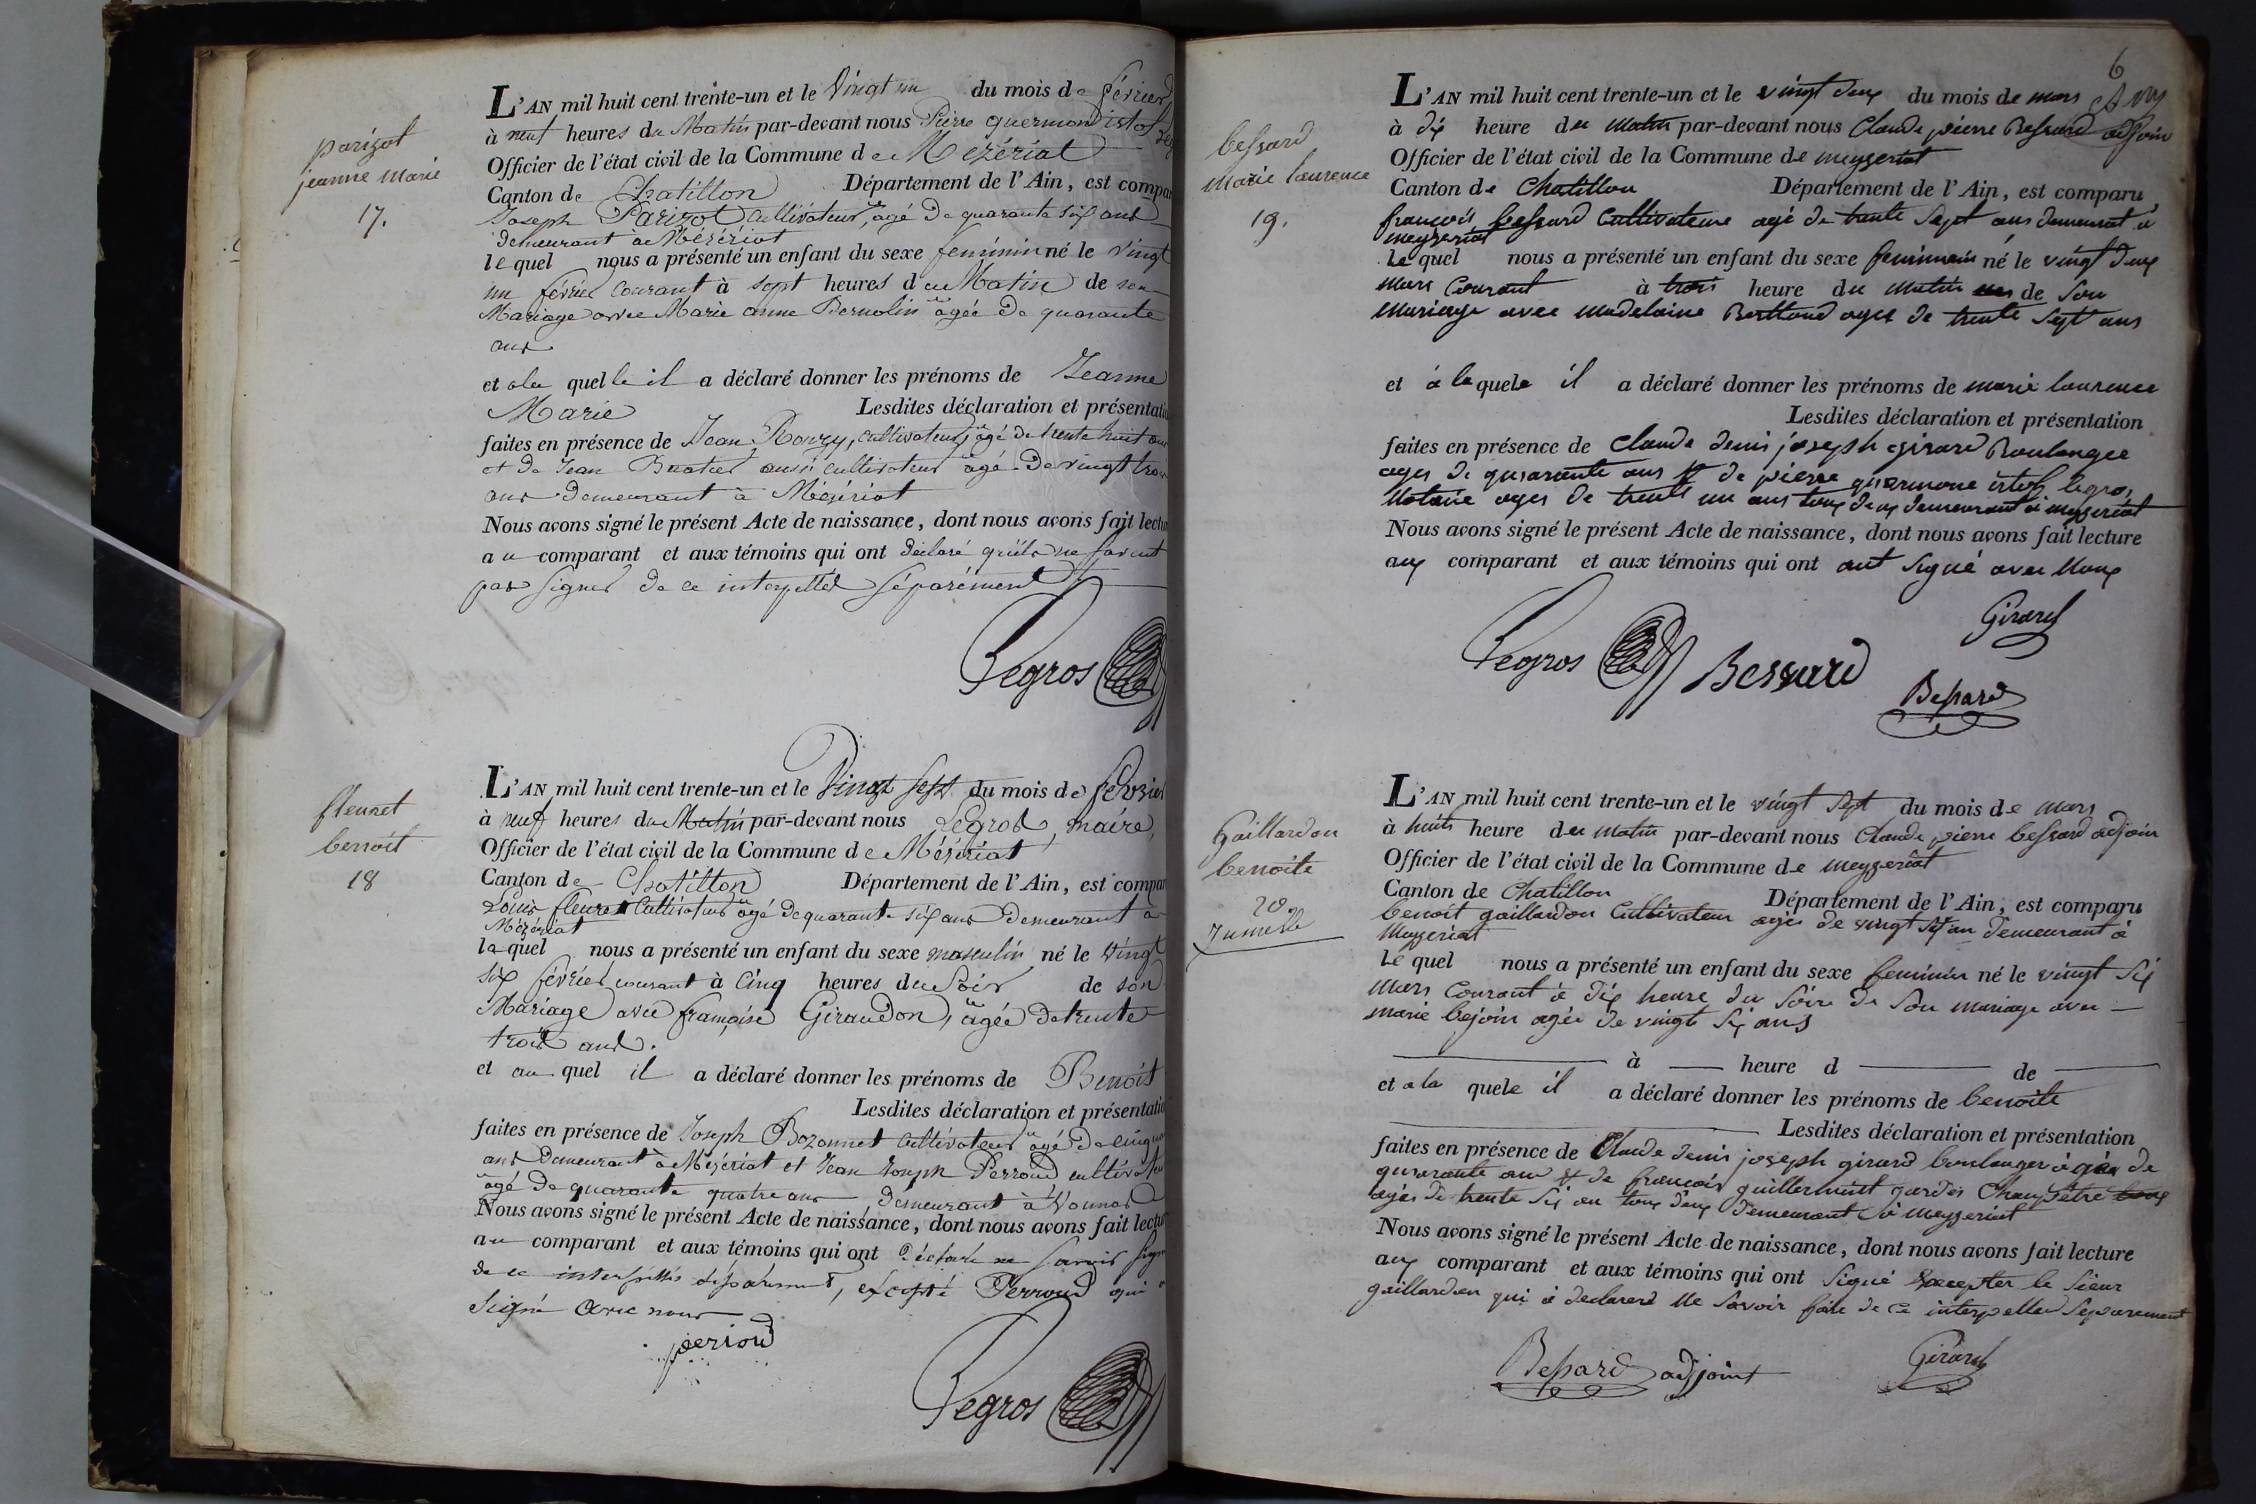 parizot
jeanne marie
17.
L'AN mil huit cent trente-un et le Vingt un du mois de février
à neuf heures du Matin par-devant nous Pierre guermond istof Leg
Officier de l'état civil de la Commune de Mézériat
Canton de Chatillon Département de l'Ain, est compar
Joseph Parizot Cultivateur, agé de quarante six ans
demeurant a Mézériat
lequel nous a présenté un enfant du sexe feminin né le vingt
un février courant à sept heures du Matin de son
Mariage avec Marie anne Bernolin agée de quarante
ans
et a la quelle il a déclaré donner les prénoms de Jeanne
Marie Lesdites déclaration et présentatio
faites en présence de Jean Rongy, cultivateur, agé de trente huit ans
et de Jean Buatier aussi cultivateur agé de vingt trois
ans demeurant à Mézériat
Nous avons signé le présent Acte de naissance, dont nous avons fait lectur
au comparant et aux témoins qui ont déclaré qu'ils ne savent
pas signer de ce interpellés séparément
Legros
fleuret
benoit
18
L'AN mil huit cent trente-un et le Vingt sept du mois de février
à neuf heures du Matin par-devant nous Legros, maire,
Officier de l'état civil de la Commune de Mézériat
Canton de Chatillon Département de l'Ain, est compar
Louis fleuret Cultivateur agé de quarante six ans demeurant a
Mézériat
laquel nous a présenté un enfant du sexe masculin né le vingt
six février courant à cinq heures du soir de son
Mariage avec françoise Giraudon, agée de trente
trois ans.
et au quel il a déclaré donner les prénoms de Benoit
Lesdites déclaration et présentatio
faites en présence de Joseph Bozonnet cultivateur agé de cinqua
ans demeurant à Mézériat et Jean Joseph Perroud cultivateu
agé de quarante quatre ans demeurant à Vonnas
Nous avons signé le présent Acte de naissance, dont nous avons fait lectur
au comparant et aux témoins qui ont déclaré ne savoir sign
de ce interpellés séparément, excepté Perroud qui a
Signé avec nous
perroud
Legros
6
bessard
Marie laurence
19.
L'AN mil huit cent trente-un et le vingt deux du mois de mars
à dix heure du matin par-devant nous Claude pierre Bessard adjoin
Officier de l'état civil de la Commune de meyzeriat
Canton de Chatillon Département de l'Ain, est comparu
françois bessard Cultivateur agé de trente Sept ans demeurant à
meyzeriat
Le quel nous a présenté un enfant du sexe feminin né le vingt deux
mars Courant à trois heure du matin de Son
mariage avec madelaine Berthoud ages de trente Sept ans
et à la quele il a déclaré donner les prénoms de marie laurence
Lesdites déclaration et présentation
faites en présence de Claude denis joseph girard Boulanger
ages de quarante ans & de pierre guermone istof legros,
Notaire ages de trente un ans tous deux demeurant à meyzeriat
Nous avons signé le présent Acte de naissance, dont nous avons fait lecture
aux comparant et aux témoins qui ont ont Signé avec Nous
Girard
Legros Bessard
Bessard
Gaillardon
benoite
20.
Jumelle
L'AN mil huit cent trente-un et le vingt Sept du mois de mars
à huit heure du matin par-devant nous Claude pierre bessard adjoin
Officier de l'état civil de la Commune de meyzeriat
Canton de Chatillon Département de l'Ain, est comparu
benoit gaillardon Cultivateur agés de vingt Six an demeurant à
Meyzeriat
Le quel nous a présenté un enfant du sexe feminin né le vingt Six
Mars Courant à Dix heure du Soire de Son mariage avec
marie bejoin agée de vingt Six ans
à heure d de
et a la quele il a déclaré donner les prénoms de benoite
Lesdites déclaration et présentation
faites en présence de Claude denis joseph girard boulanger agée de
quarante ans & de françois guillermint garde Champêtre
agés de trente Six an tous deux demeurant à Meyzeriat
Nous avons signé le présent Acte de naissance, dont nous avons fait lecture
aux comparant et aux témoins qui ont Signé Excepter le Sieur
gaillardon qui à declarer Ne Savoir faire de ce interpeller Separement
Bessard adjoint Girard